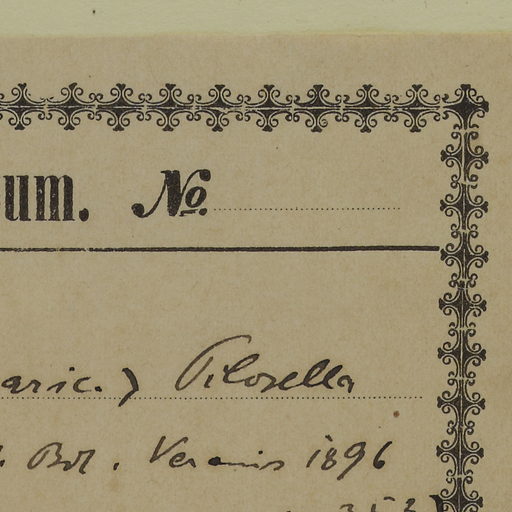 um. No.
aric.) Pilosella
Bot. Vereins 1896
353